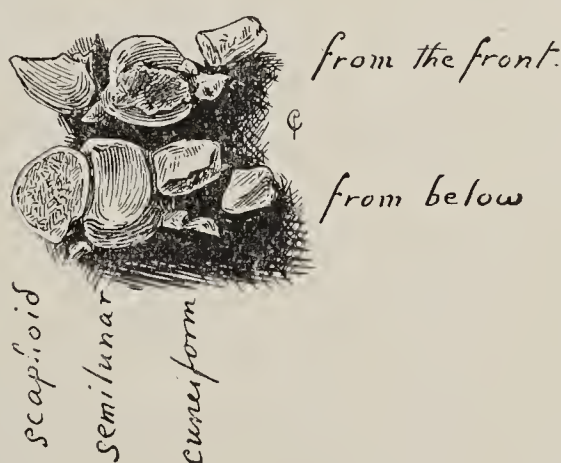 from the front.
from below
scaphoid
semilunar
cuneiform